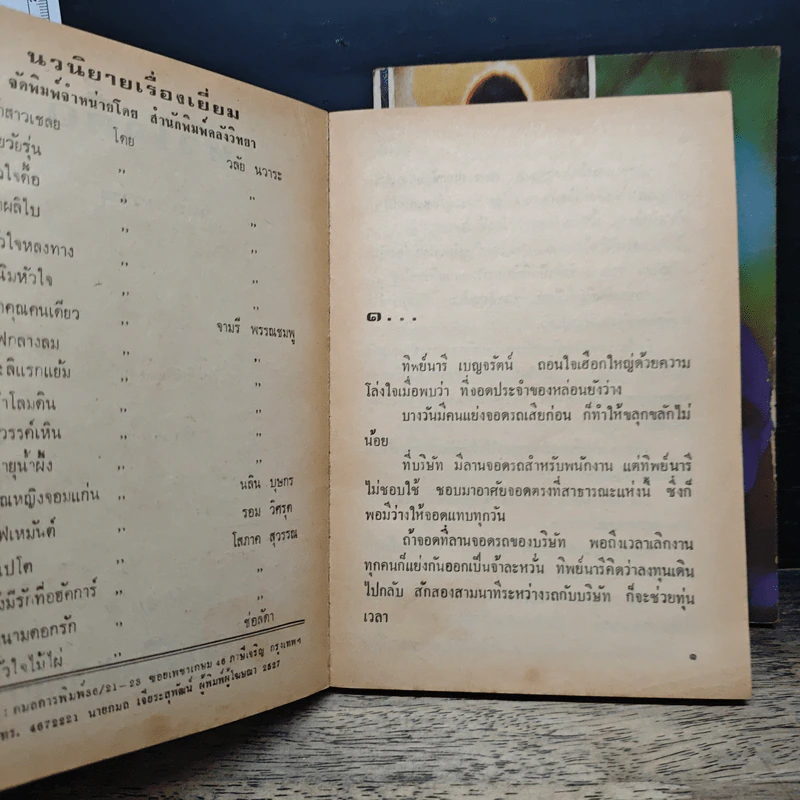 นวนิยายเรื่องเยี่ยม
จัดพิมพ์จำหน่ายโดย สำนักพิมพ์คลังวิทยา
สาวเชลย โดย วลัย นวาระ
วัยรุ่น ,, ,,
ใจดื้อ ,, ,,
ผลิใบ ,, ,,
ใจหลงทาง ,, ,,
หัวใจ ,, ,,
คุณคนเดียว ,, จามรี พรรณชมพู
กลางลม ,, ,,
แรกแย้ม ,, ,,
โลมดิน ,, ,,
วรรค์เหิน ,, ,,
ายุน้ำผึ้ง ,, ,,
ณหญิงจอมแก่น ,, นลิน บุษกร
ฟเหมันต์ ,, รอม วิศรุต
เปโต ,, โสภาค สุวรรณ
งมีรักที่อฮัคการ์ ,, ,,
นามดอกรัก ,, ,,
หัวใจไม้ไผ่ ,, ช่อลัดา
: กมลการพิมพ์36/21-23 ซอยเพชรเกษม 46 ภาษีเจริญ กรุงเทพฯ
ทร. 4672221 นายกมล เจียระสุพัฒน์ ผู้พิมพ์ผู้โฆษณา 2527
๑...
ทิพย์นารี เบญจรัตน์ ถอนใจเฮือกใหญ่ด้วยความ
โล่งใจเมื่อพบว่า ที่จอดประจำของหล่อนยังว่าง
บางวันมีคนแย่งจอดรถเสียก่อน ก็ทำให้ขลุกขลักไม่
น้อย
ที่บริษัท มีลานจอดรถสำหรับพนักงาน แต่ทิพย์นารี
ไม่ชอบใช้ ชอบมาอาศัยจอดตรงที่สาธารณะแห่งนี้ ซึ่งก็
พอมีว่างให้จอดแทบทุกวัน
ถ้าจอดที่ลานจอดรถของบริษัท พอถึงเวลาเลิกงาน
ทุกคนก็แย่งกันออกเป็นจ้าละหวั่น ทิพย์นารีคิดว่าลงทุนเดิน
ไปกลับ สักสองสามนาทีระหว่างรถกับบริษัท ก็จะช่วยทุ่น
เวลา
๑